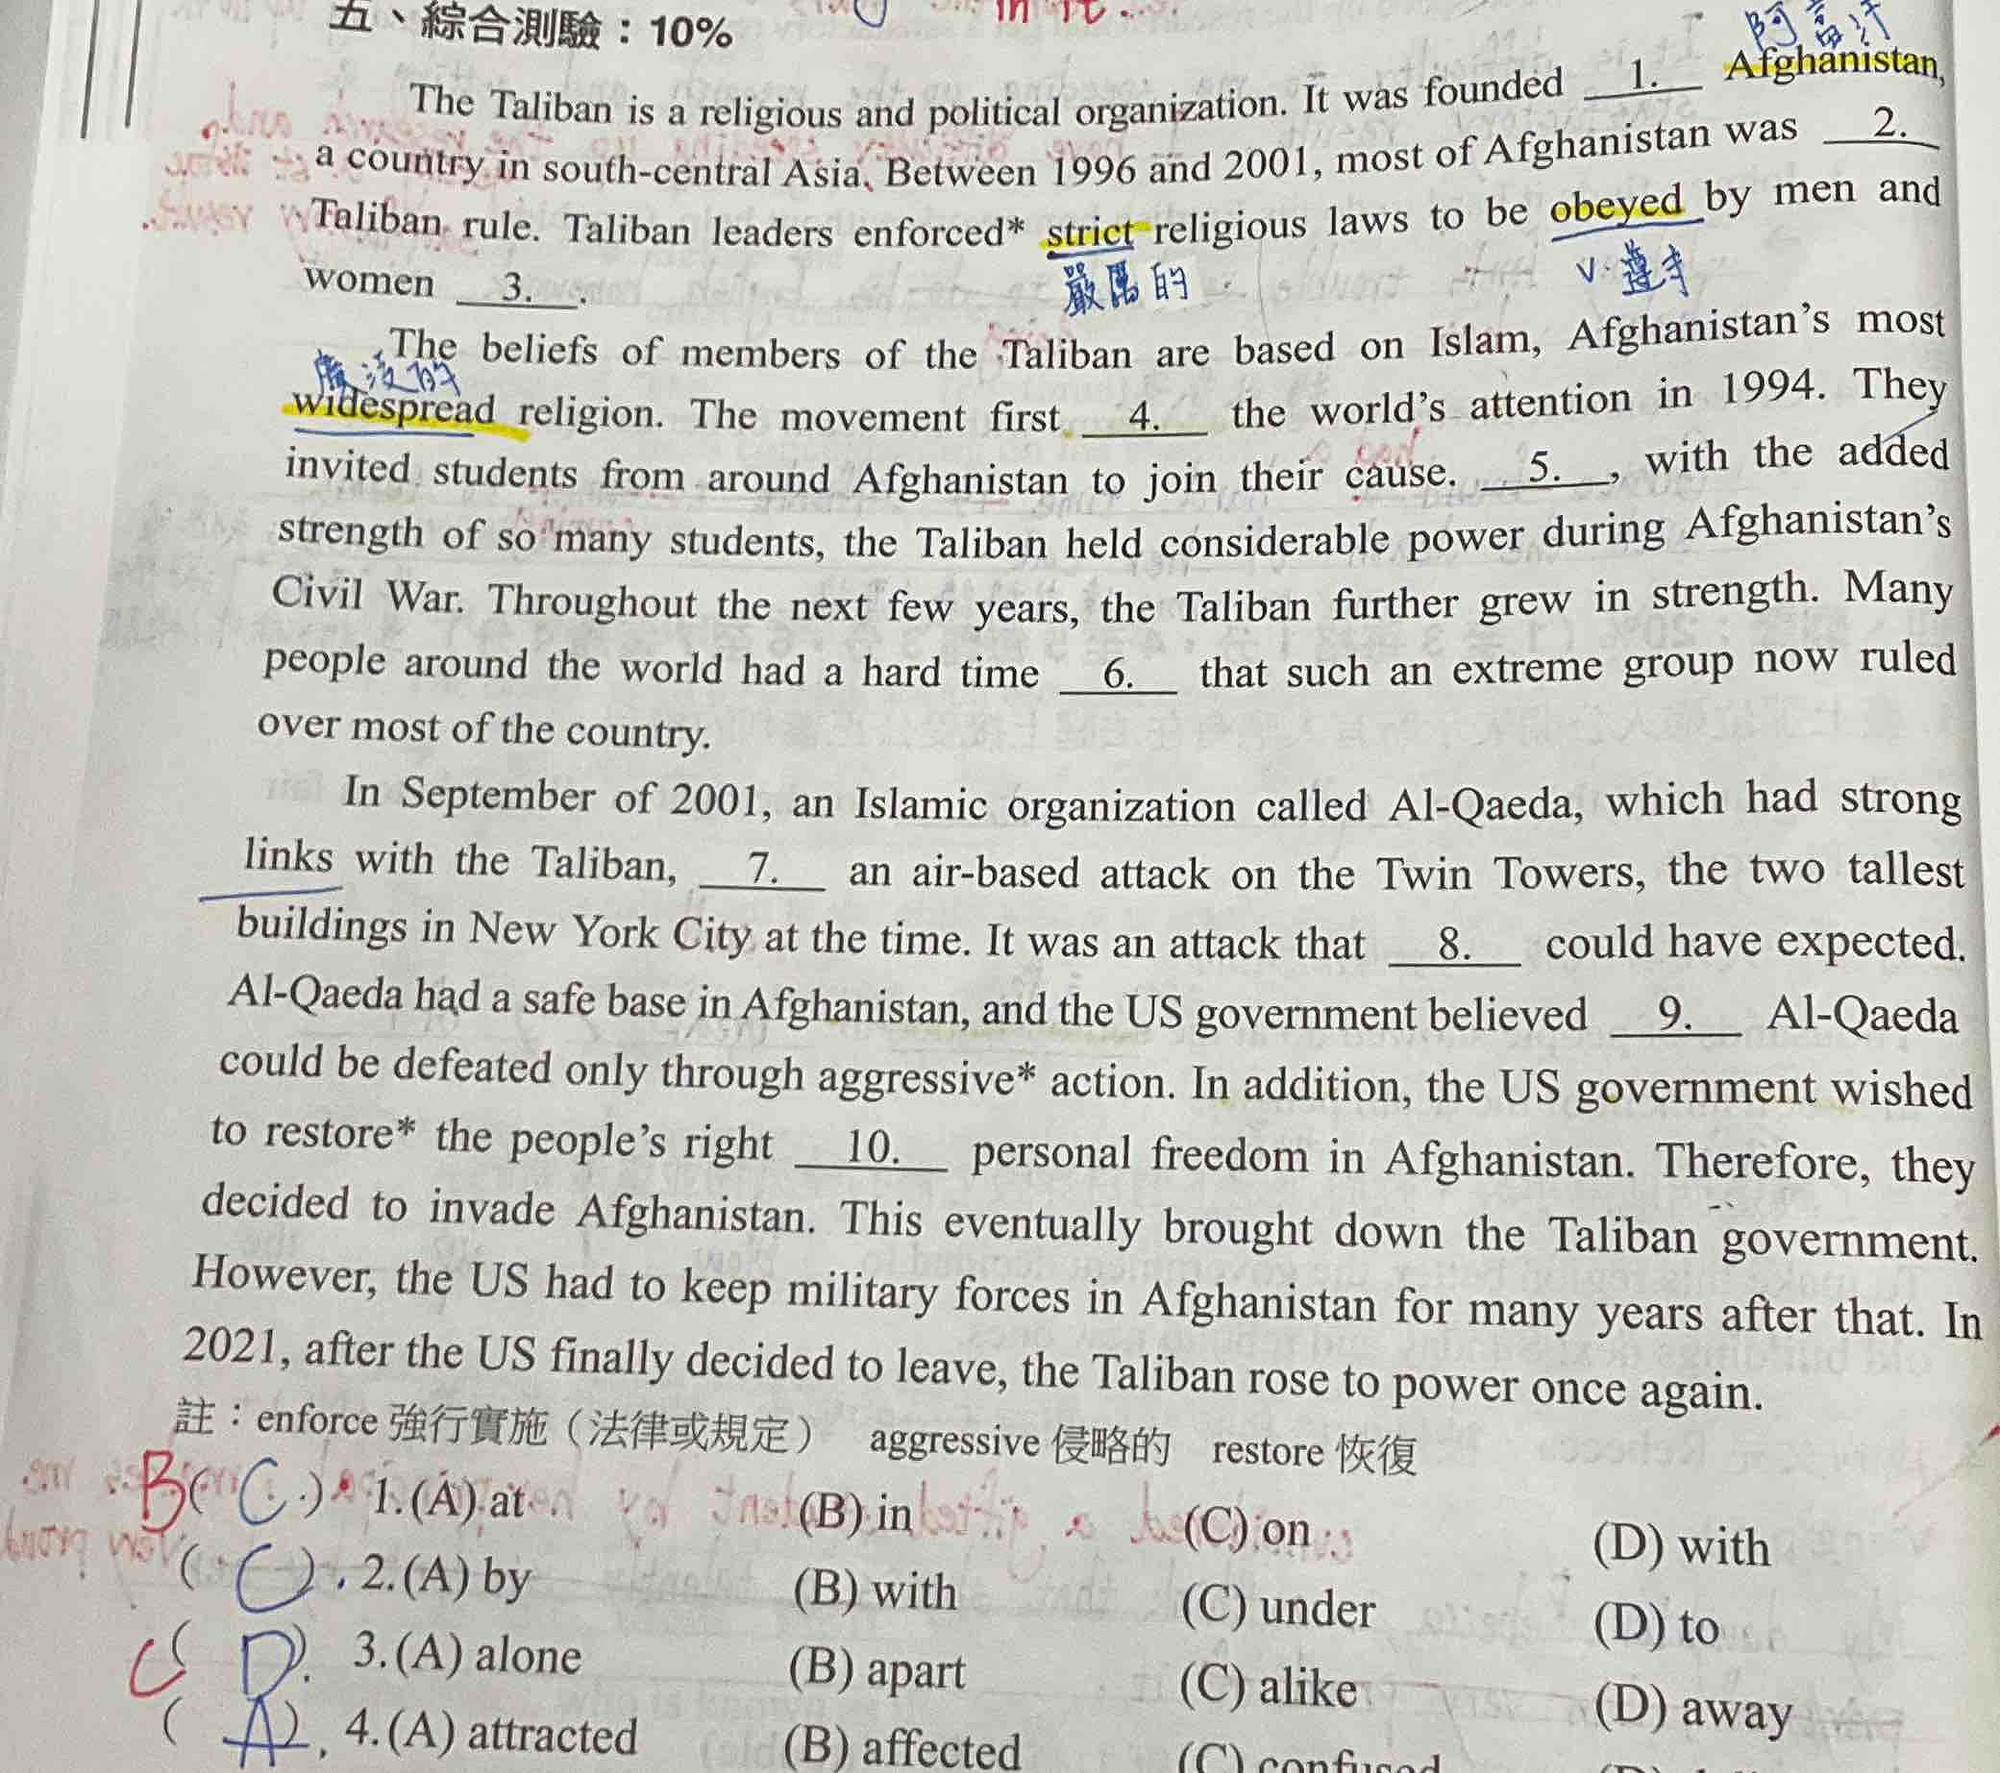 五、綜合測驗：10%
阿富汗
The Taliban is a religious and political organization. It was founded 1. Afghanistan,
a country in south-central Asia. Between 1996 and 2001, most of Afghanistan was 2.
Taliban rule. Taliban leaders enforced* strict religious laws to be obeyed by men and
women 3. .
嚴厲的
v. 遵守
The beliefs of members of the Taliban are based on Islam, Afghanistan's most
widespread religion. The movement first 4. the world's attention in 1994. They
invited students from around Afghanistan to join their cause. 5. , with the added
strength of so many students, the Taliban held considerable power during Afghanistan's
Civil War. Throughout the next few years, the Taliban further grew in strength. Many
people around the world had a hard time 6. that such an extreme group now ruled
over most of the country.
In September of 2001, an Islamic organization called Al-Qaeda, which had strong
links with the Taliban, 7. an air-based attack on the Twin Towers, the two tallest
buildings in New York City at the time. It was an attack that 8. could have expected.
Al-Qaeda had a safe base in Afghanistan, and the US government believed 9. Al-Qaeda
could be defeated only through aggressive* action. In addition, the US government wished
to restore* the people's right 10. personal freedom in Afghanistan. Therefore, they
decided to invade Afghanistan. This eventually brought down the Taliban government.
However, the US had to keep military forces in Afghanistan for many years after that. In
2021, after the US finally decided to leave, the Taliban rose to power once again.
註：enforce 強行實施（法律或規定） aggressive 侵略的 restore 恢復
B ( C ) 1.(A) at (B) in (C) on (D) with
( C ) 2.(A) by (B) with (C) under (D) to
C ( D ) 3.(A) alone (B) apart (C) alike (D) away
( A ) 4.(A) attracted (B) affected (C) confused